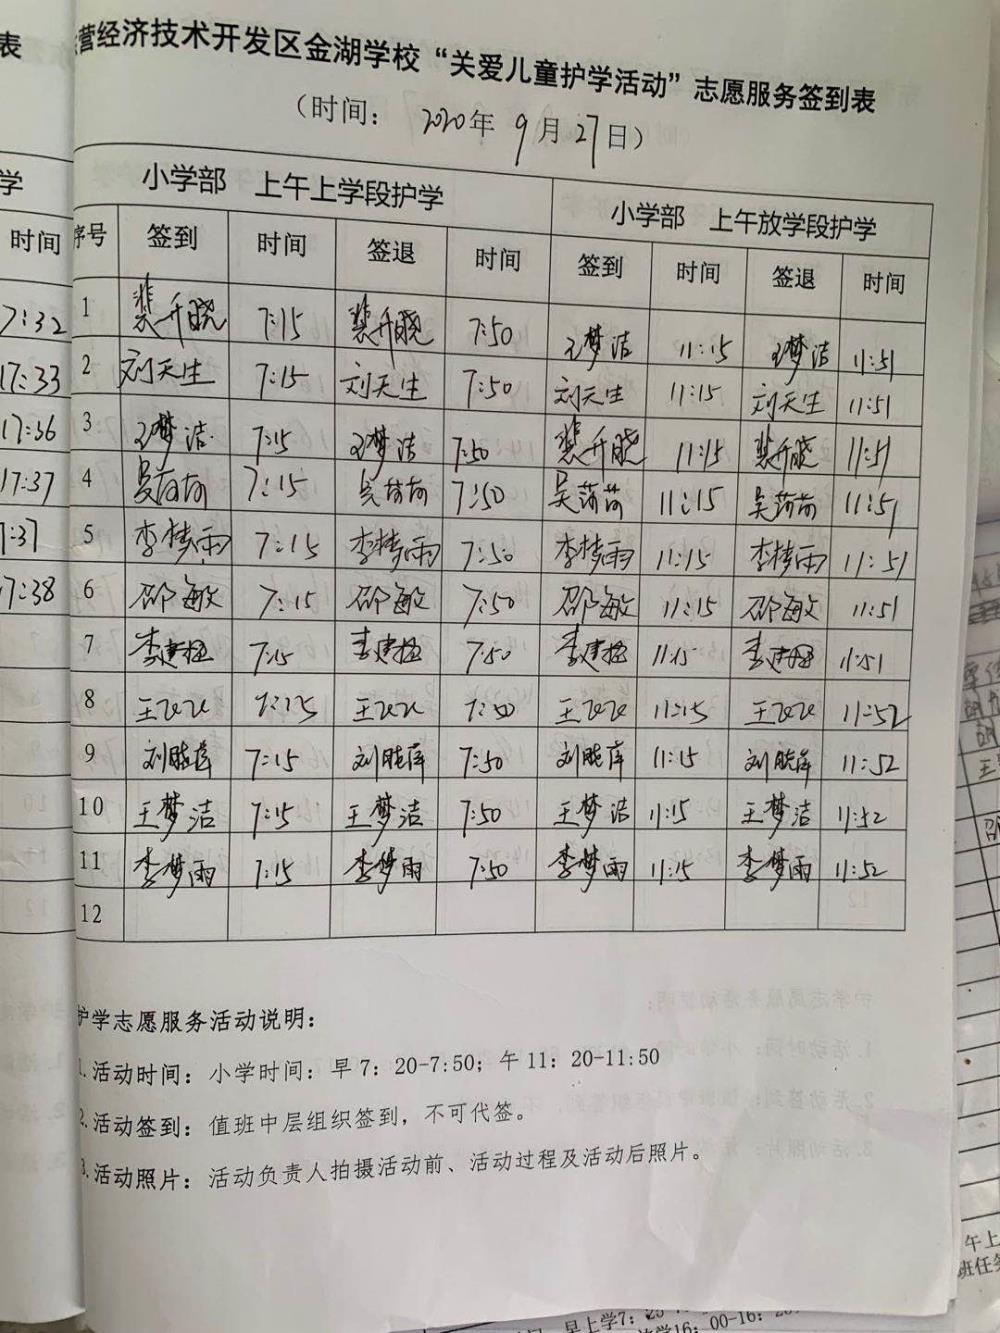 表
营经济技术开发区金湖学校“关爱儿童护学活动”志愿服务签到表
（时间： 2020年 9月27日）
学
小学部 上午上学段护学 小学部 上午放学段护学
时间 序号 签到 时间 签退 时间 签到 时间 签退 时间
7:32 1 裴升晓 7:15 裴升晓 7:50 王梦洁 11:15 王梦洁 11:51
17:33 2 刘天生 7:15 刘天生 7:50 刘天生 11:15 刘天生 11:51
17:36 3 王梦洁 7:15 王梦洁 7:50 裴升晓 11:15 裴升晓 11:51
17:37 4 吴荷荷 7:15 吴荷荷 7:50 吴荷荷 11:15 吴荷荷 11:51
7:37 5 李梦雨 7:15 李梦雨 7:50 李梦雨 11:15 李梦雨 11:51
17:38 6 邵敏 7:15 邵敏 7:50 邵敏 11:15 邵敏 11:51
7 7:15 7:50 11:15 11:51
8 7:15 7:50 11:15 11:52
9 刘晓萍 7:15 刘晓萍 7:50 刘晓萍 11:15 刘晓萍 11:52
10 王梦洁 7:15 王梦洁 7:50 王梦洁 11:15 王梦洁 11:52
11 李梦雨 7:15 李梦雨 7:50 李梦雨 11:15 李梦雨 11:52
12
护学志愿服务活动说明：
1.活动时间：小学时间：早7：20-7:50；午11：20-11:50
2.活动签到：值班中层组织签到，不可代签。
3.活动照片：活动负责人拍摄活动前、活动过程及活动后照片。
午上
班任务